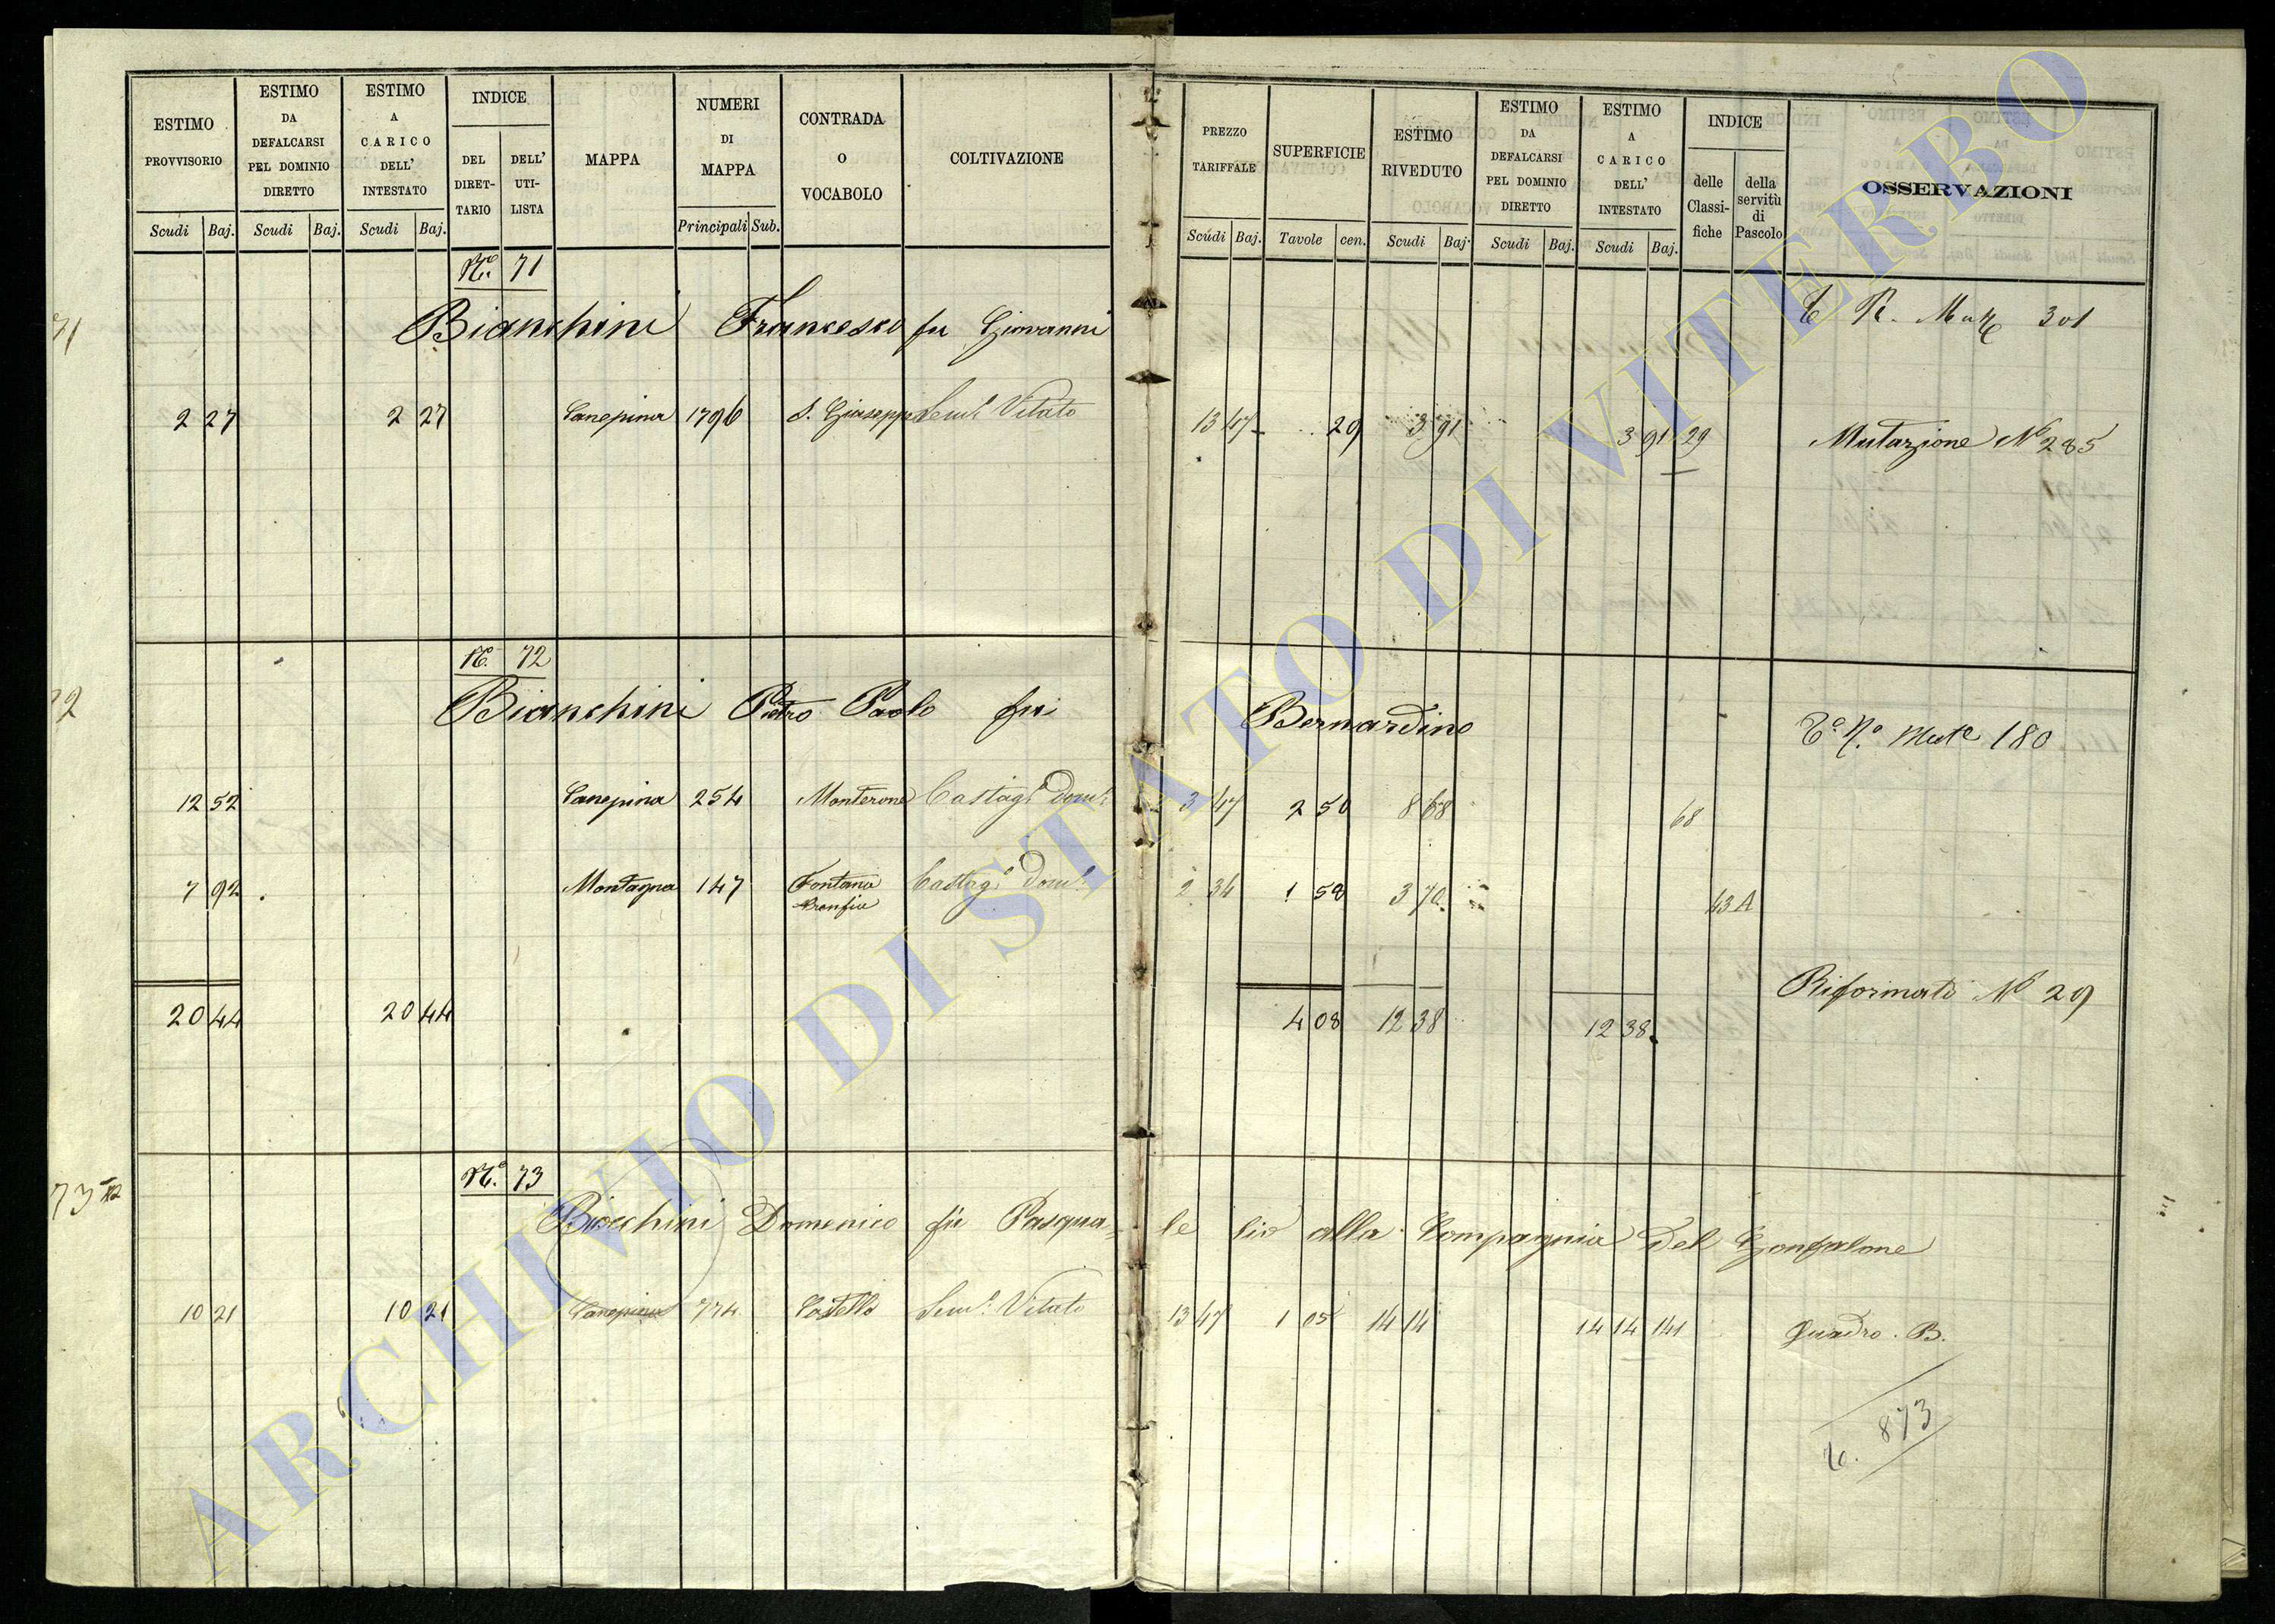 ESTIMO PROVVISORIO | ESTIMO DA DEFALCARSI PEL DOMINIO DIRETTO | ESTIMO A CARICO DELL' INTESTATO | INDICE | DEL DIRET-TARIO | DELL' UTI-LISTA | MAPPA | NUMERI DI MAPPA | CONTRADA O VOCABOLO | COLTIVAZIONE | PREZZO TARIFFALE | SUPERFICIE | ESTIMO RIVEDUTO | ESTIMO DA DEFALCARSI PEL DOMINIO DIRETTO | ESTIMO A CARICO DELL' INTESTATO | INDICE | delle Classi-fiche | della servitù di Pascolo | OSSERVAZIONI
Scudi Baj. Scudi Baj. Scudi Baj. Principali Sub. Scudi Baj. Tavole cen. Scudi Baj. Scudi Baj. Scudi Baj.
N.o 71
71 Bianchini Francesco fu Giovanni 301
2 27 2 27 Canepina 1796 S. Giuseppe Sem. Vitato 13 47 29 3 91 3 91 29 Mutazione No 285
N. 72
72 Bianchini Pietro Paolo fu Bernardino 180
12 52 Canepina 254 Monterone Castag. Dom. 3 47 2 50 8 68 68
7 92 Montagna 147 Fontana Castag. Dom. 2 34 1 58 3 70 43 A
20 44 20 44 4 08 12 38 12 38 Riformato No 29
N.o 73
73 Domenico fu Pasqua-le liv alla Compagnia del Gonfalone
10 21 10 21 Canepina 774 Castello Sem. Vitato 13 47 1 05 14 14 14 14 141 Quadro. B.
873
ARCHIVIO DI STATO DI VITERBO